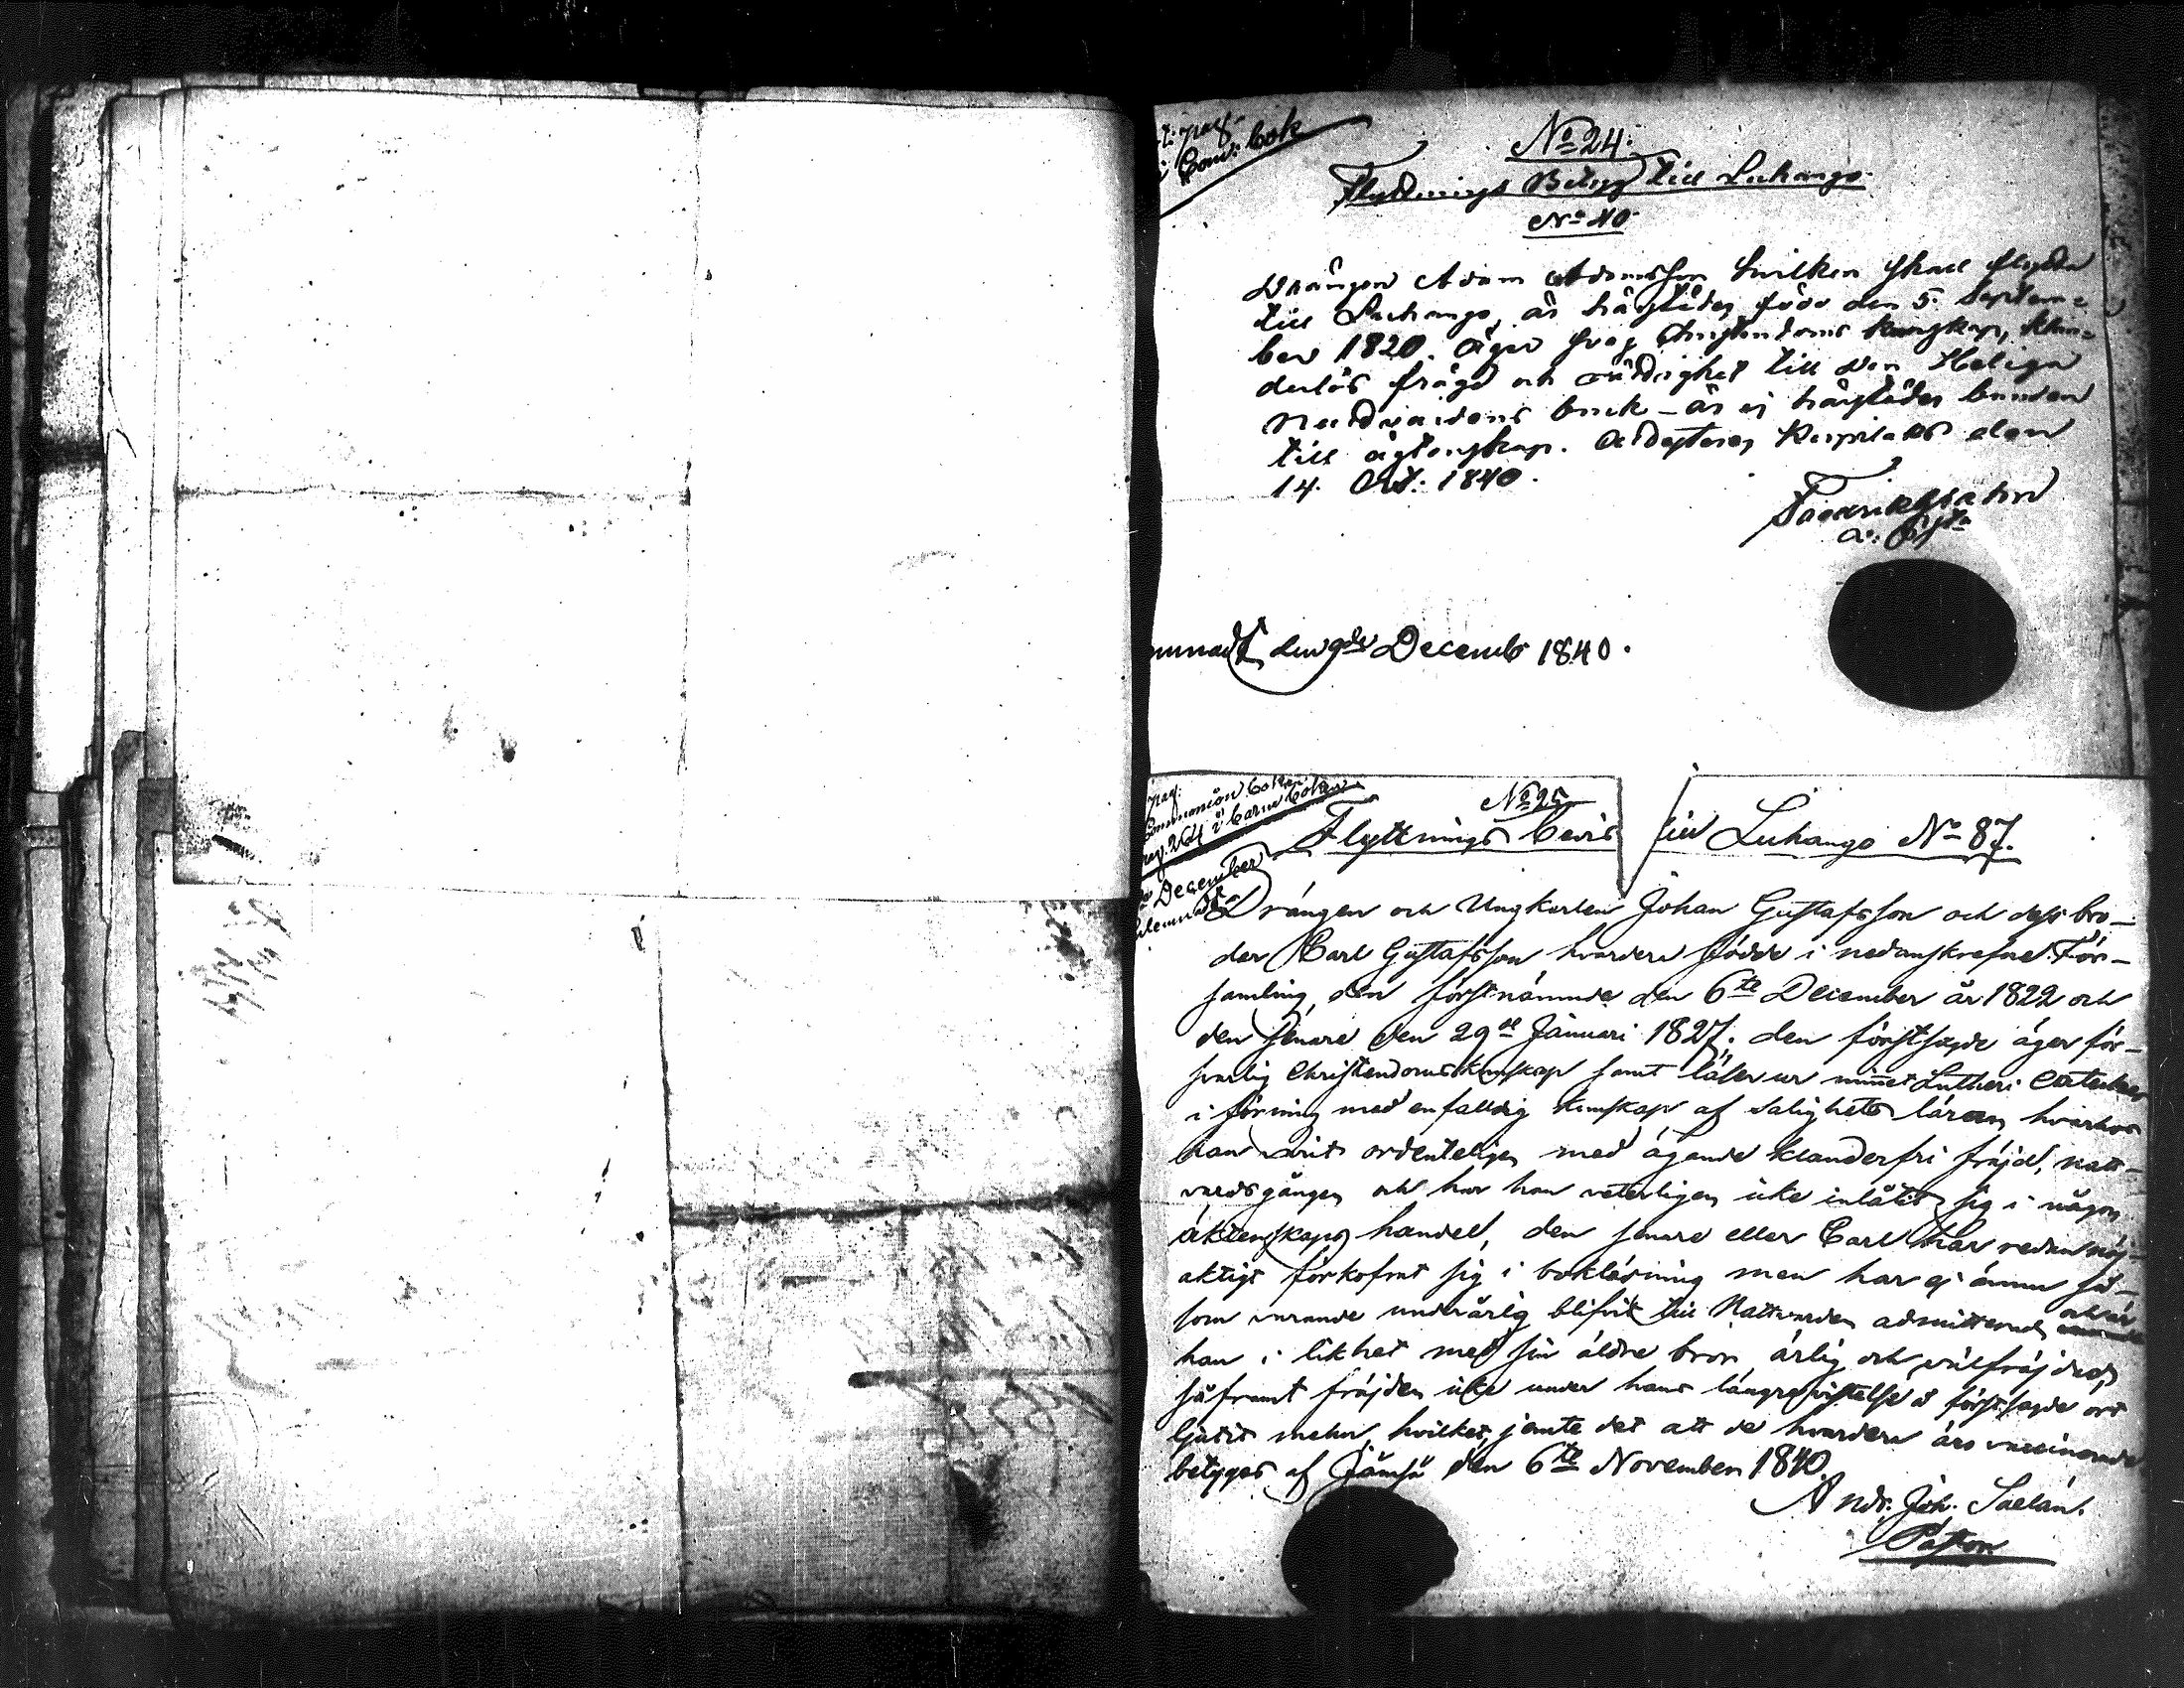 Com: bok
No 24.
Flyttnings Betyg till Luhango.
No 40
Drängen Adam Adamsson hvilken skall flytta
till Luhango, är härstädes född den 5. Septem=
ber 1820. Äger svag Christendoms kunskap, klan=
derlös frägd och till den Heliga
Nattvardens bruk – är ej härstädes bunden
till ägtenskap. Attesteras den
14. Oct: 1840.
den 9de Decemb 1840.
pag.
Communion boken
pag. 264 i barne boken
December
No 25
Flyttnings bevis till Luhango No 87.
Drängen och Ungkarlen Johan Gustafsson och dess bro–
der Carl Gustafsson hvardera födde i nedanskrefne För–
samling, den förstnämnde den 6te December år 1822 och
den senare den 29de Januari 1827. den förstsagde äger för–
svarlig Christendomskunskap samt läser ur minnet Lutheri
i förening med enfaldig kunskap af Salighets läran, hvarhos
han varit ordenteligen med ägande klanderfri fräjd, natt–
vardsgången och har han veterligen icke inlåtit sig i någon
äktenskaps handel, den senare eller Carl har redan nöj–
aktigt förkofrat sig i bokläsning men har ej ännu så–
som varande underårig blifvit till Nattvarden admitterad, och är
han i likhet med sin äldre bror ärlig och välfräjdad,
såframt fräjden icke under hans längre vistelse å förstsagde ort
ljutit mehn, hvilket, jemte det att de hvardera äro vaccinerade
betygas af Jämsä den 6te November 1840.
Andr. Joh. Saelán.
Pastor